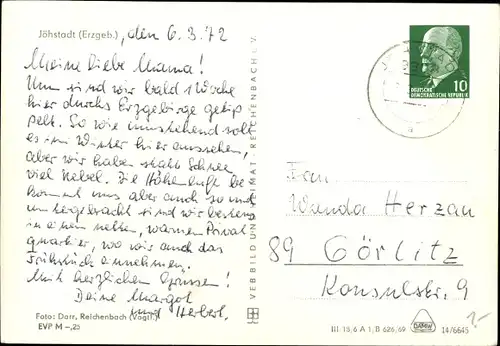 Jöhstadt (Erzgeb.), den 6.3.72
Meine liebe Mama!
Nun sind wir bald 1 Woche
hier durchs Erzgebirge getip
pelt. So wie umstehend sollt
es im Winter hier aussehen,
aber wir haben statt Schnee
viel Nebel. Die Höhenluft be
kommt uns aber auch so und
untergebracht sind wir bestens
in einem netten, warmen Privat
quartier, wo wir auch das
Frühstück einnehmen.
Mit herzlichen Grüssen!
Deine Margot
und Herbert.
Foto: Darr, Reichenbach (Vogtl.)
EVP M –,25
VEB BILD UND HEIMAT · REICHENBACH i. V.
10
DEUTSCHE
DEMOKRATISCHE REPUBLIK
Frau
Wanda Herzau
89 Görlitz
Konsulstr. 9
III 15/6 A 1, B 626/69
DAMW
14/6645